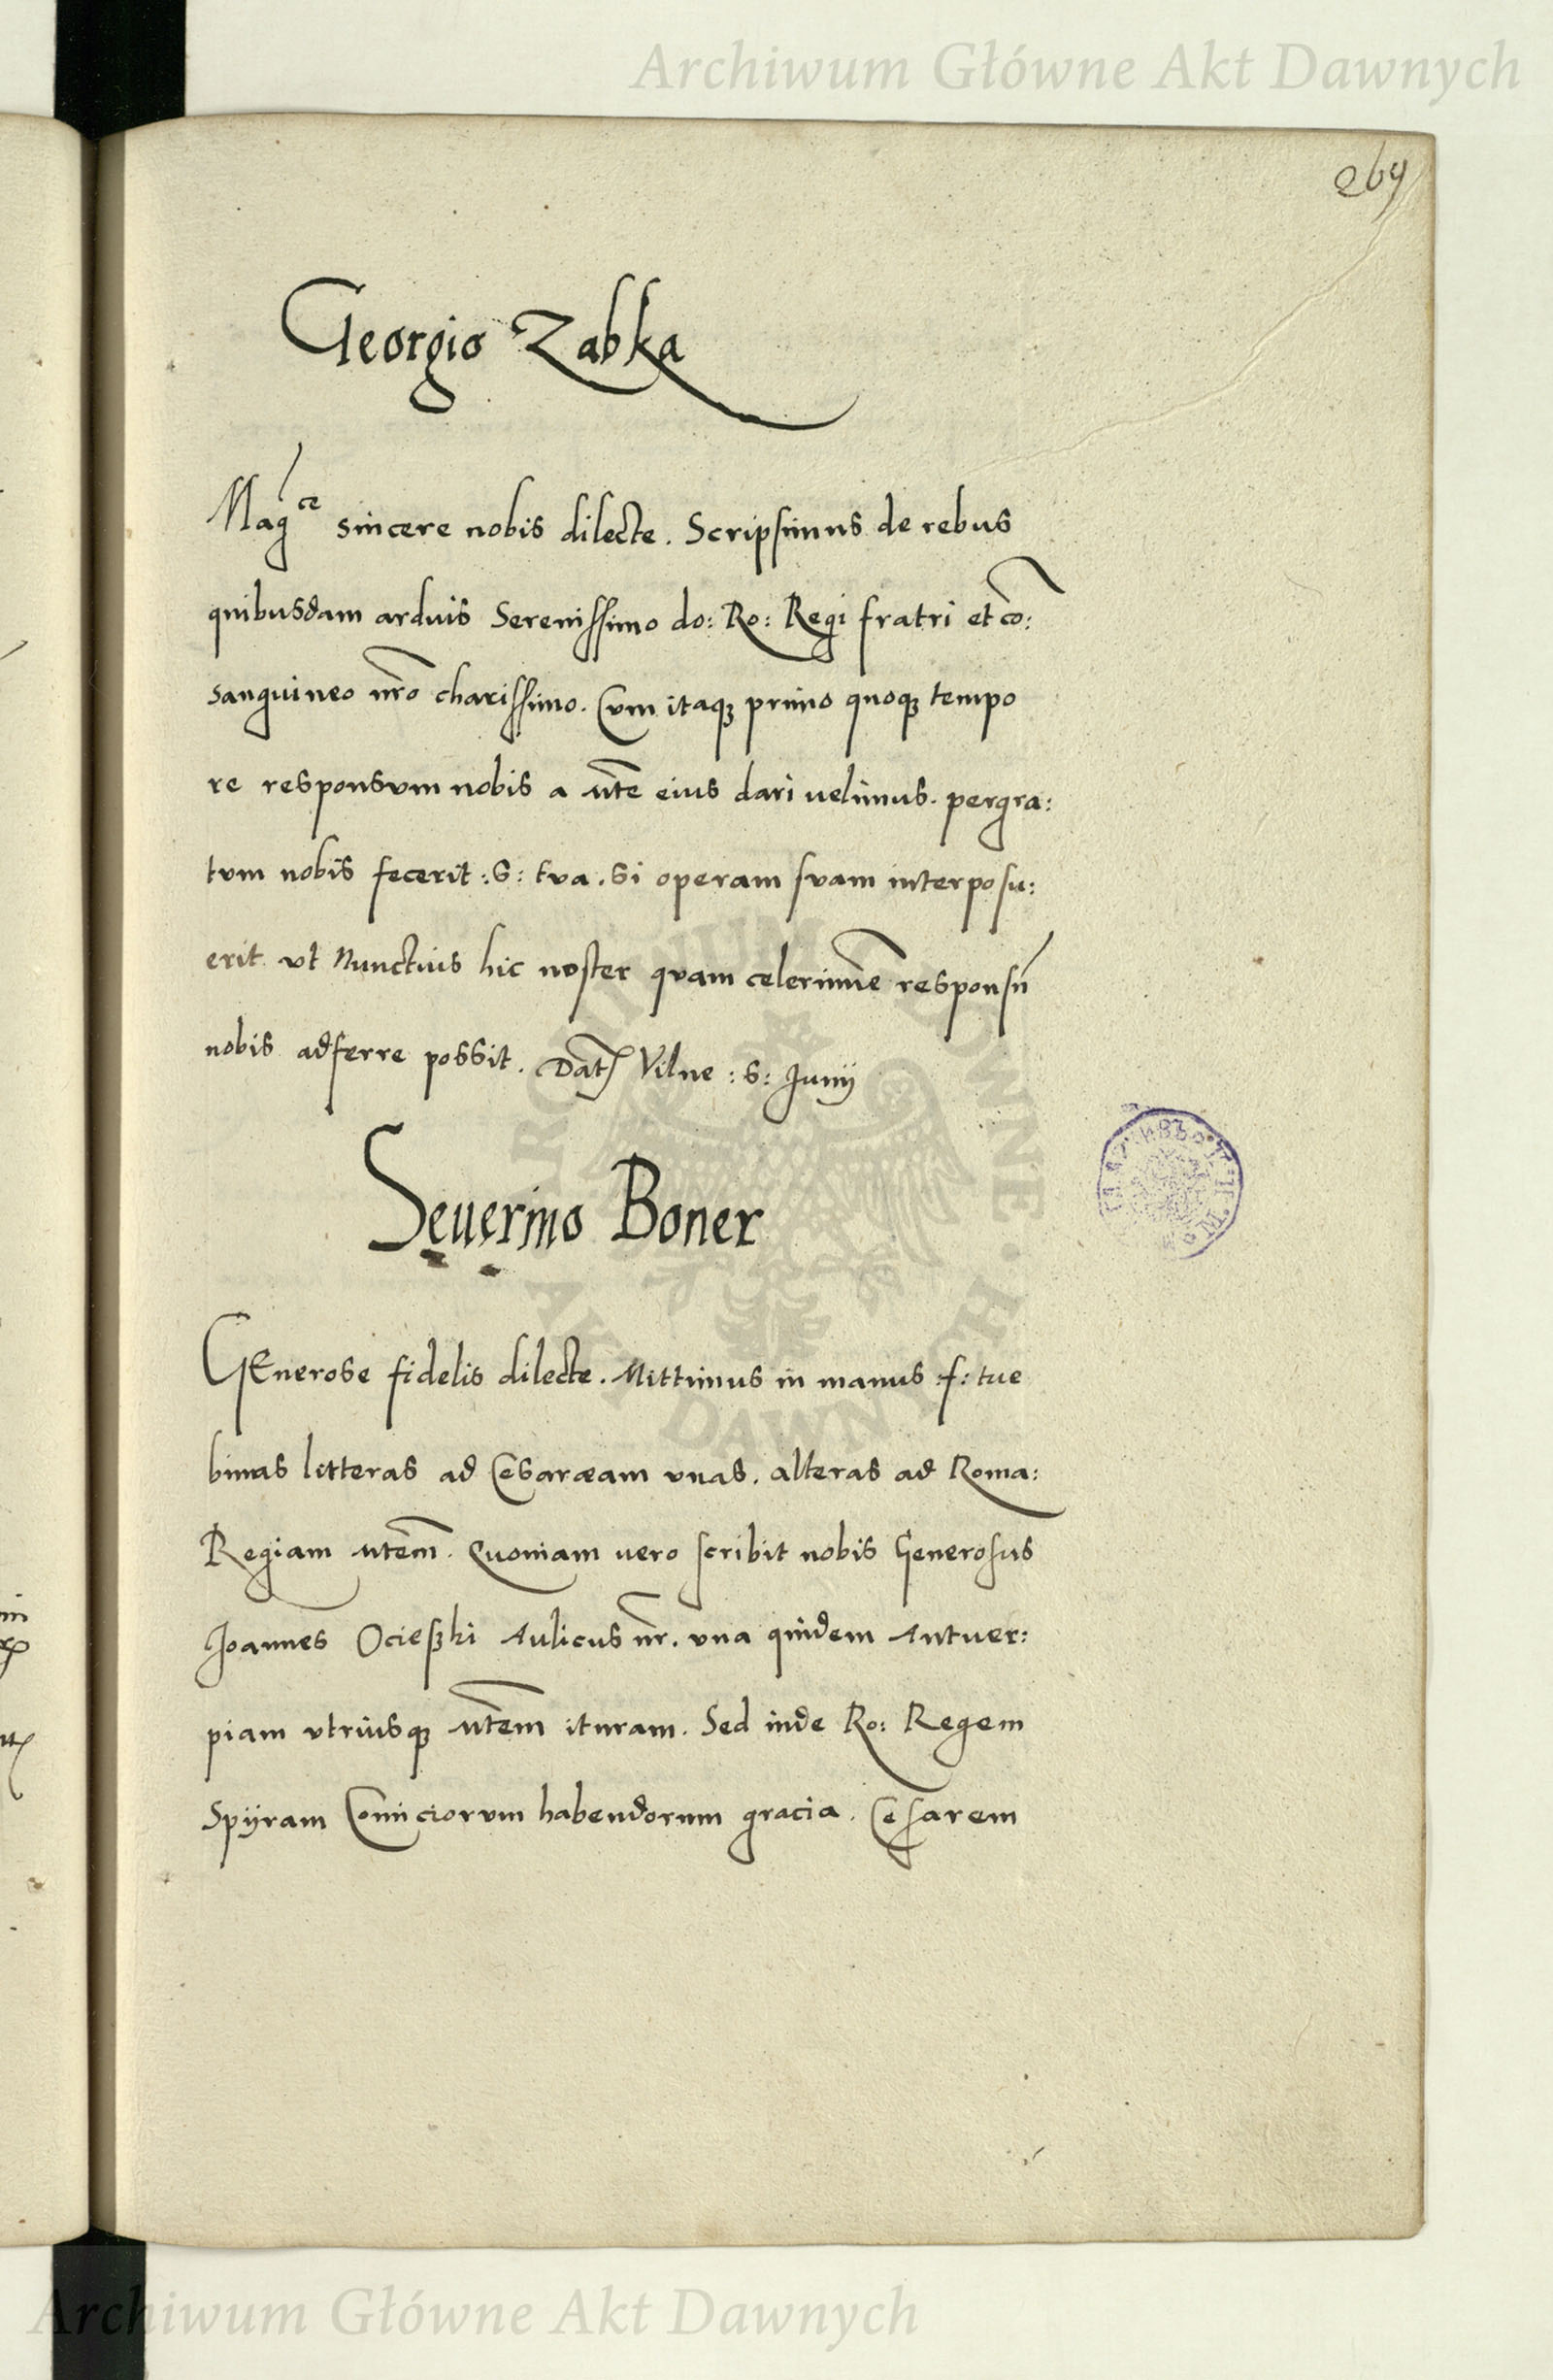 Archiwum Główne Akt Dawnych
269
Georgio Zabka
Mag^ce sincere nobis dilecte. Scripsimus de rebus
quibusdam arduis Serenissimo do: Ro: Regi fratri et co:
sanguineo nro charissimo. Cum itaq primo quoq tempo
re responsum nobis a Mte eius dari uelimus. pergra:
tum nobis fecerit :S: tua. Si operam suam interposu:
erit vt Nunctius hic noster quam celerime responsũ
nobis adferre possit. Dat Vilne :5: Junij
Seuerino Boner
GEnerose fidelis dilecte. Mittimus in manus :f: tue
binas litteras ad Cesaræam vnas. alteras ad Roma:
Regiam Mtem. Quoniam uero scribit nobis Generosus
Joannes Ocießki Aulicus nr. vna quidem Antuer:
piam vtriusq Mtem ituram. Sed inde Ro: Regem
Spijram Comiciorum habendorum gracia. Cesarem
ARCHIWUM GŁÓWNE AKT DAWNYCH
Archiwum Główne Akt Dawnych